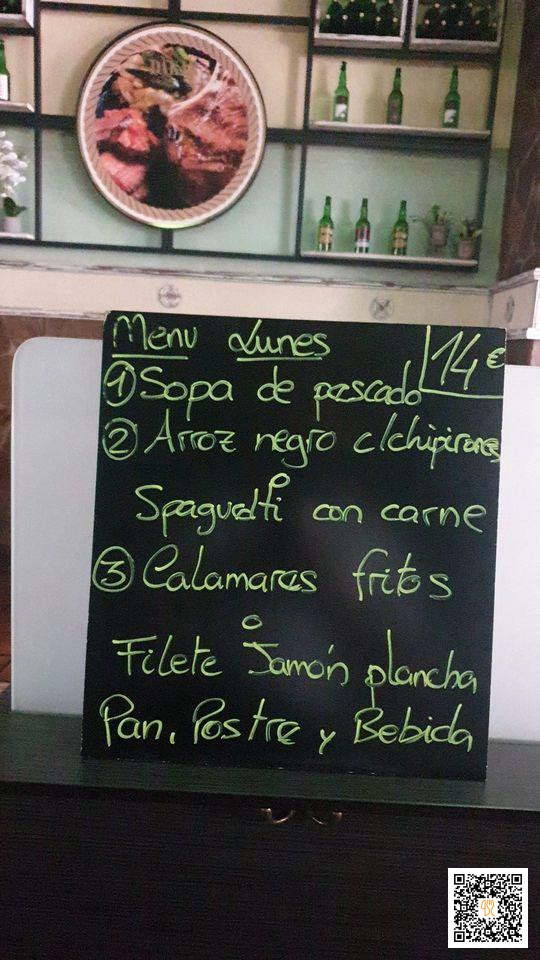 Menu Lunes 14€
① Sopa de pescado
② Arroz negro c/chipirones
o
Spaguetti con carne
③ Calamares fritos
o
Filete Jamón plancha
Pan, Postre y Bebida